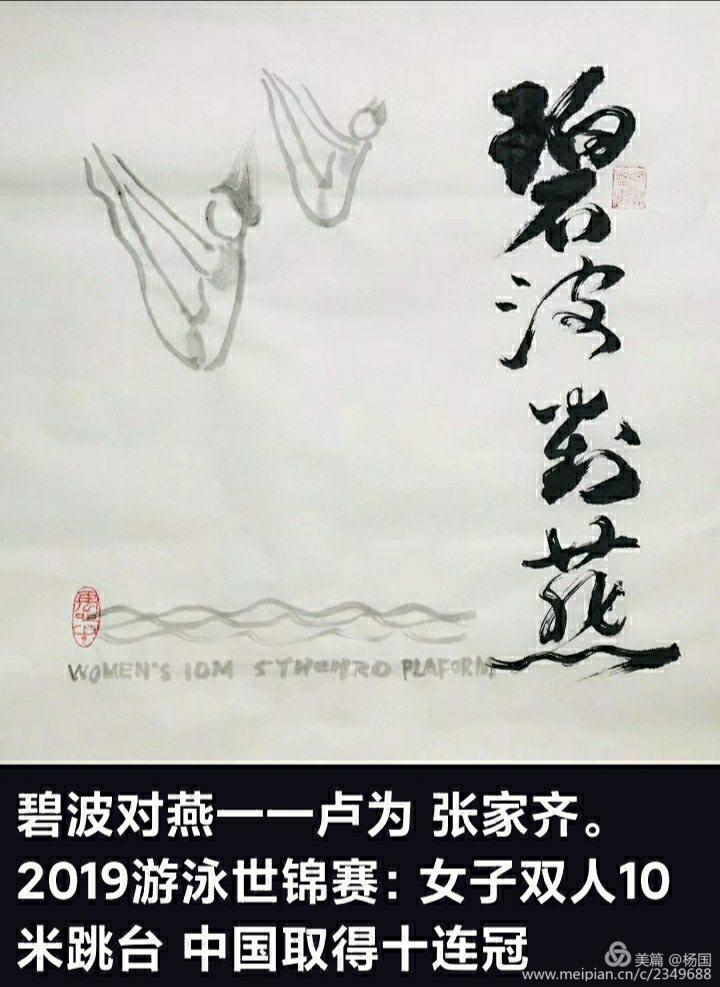 碧波對燕
WOMEN'S 10M SYNCHRO PLAFORM
碧波对燕一一卢为 张家齐。
2019游泳世锦赛：女子双人10
米跳台 中国取得十连冠
美篇 @杨国
www.meipian.cn/c/2349688